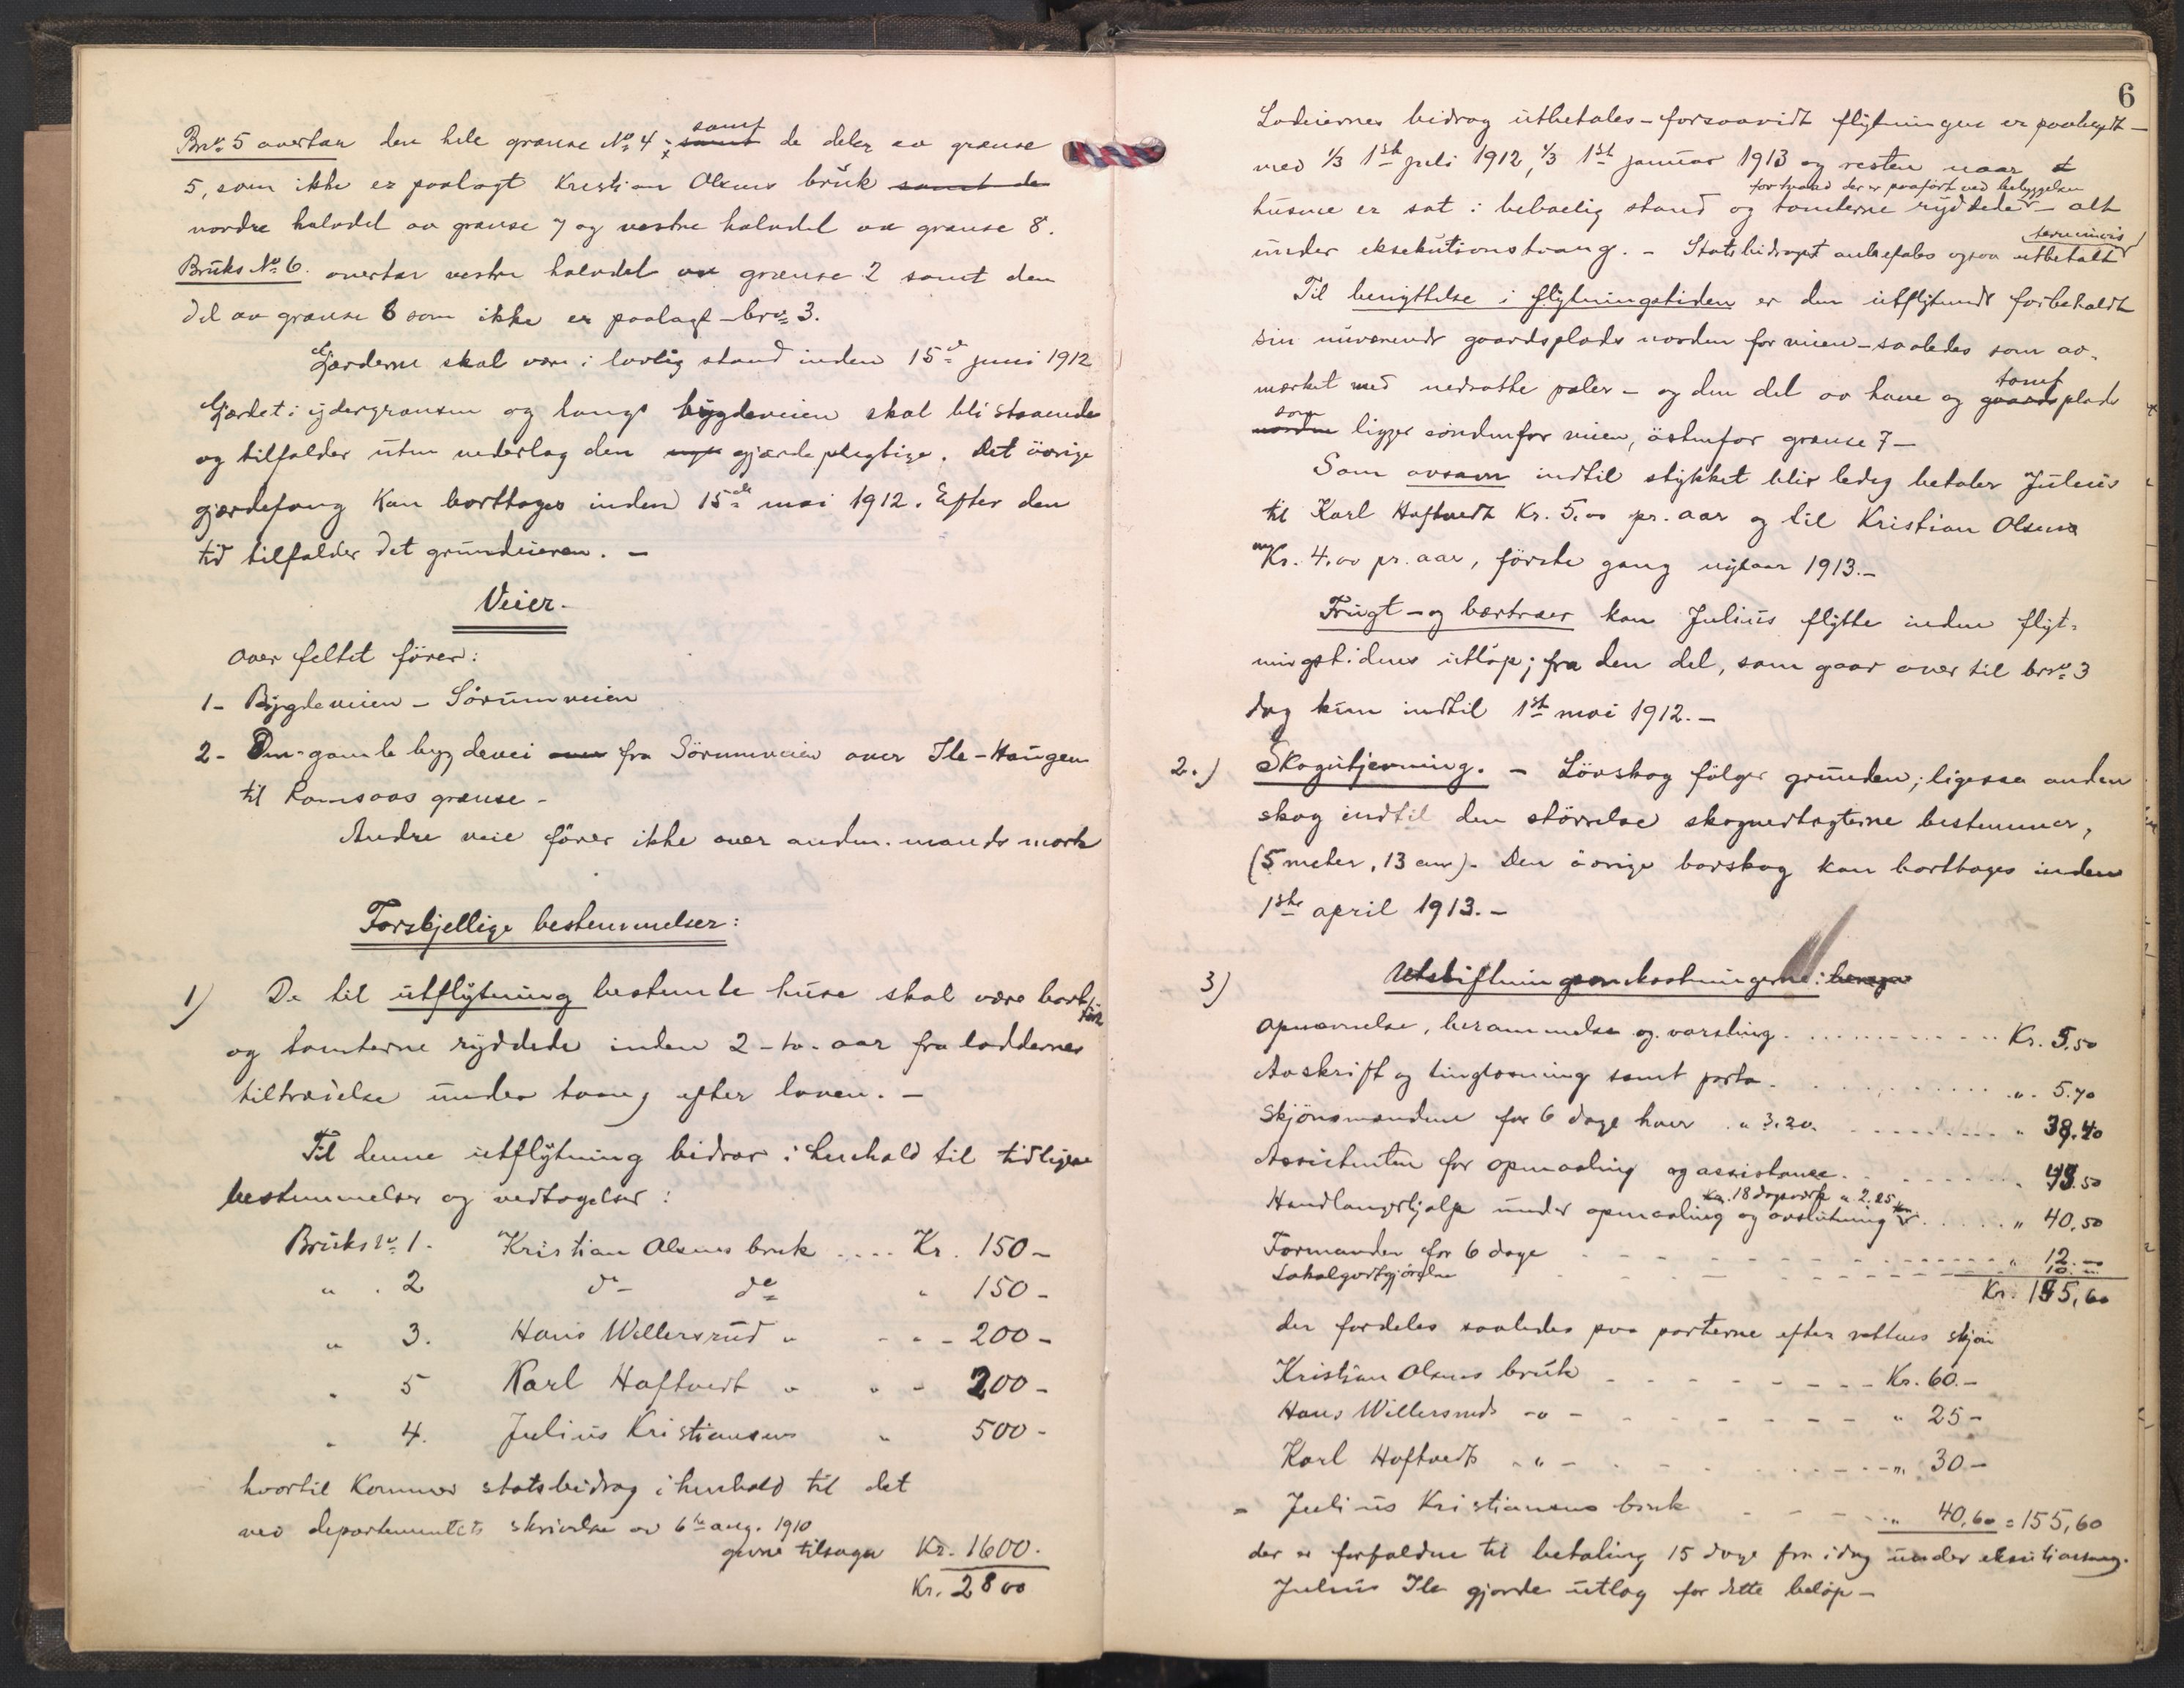 Brno 5 overtar den hele grænse No 4, samt de deler av grænse
5, som ikke er paalagt Kristian Olsens bruk samt de
nordre halvdel av grænse 7 og vestre halvdel av grænse 8.
Bruks No 6. overtar vestre halvdel av grænse 2 samt den
del av grænse 8 som ikke er paalagt brno 3.
Gjærderne skal være i lovlig stand inden 15de juni 1912
Gjærdet i ydergrænsen og langs bygdeveien skal bli staaende
og tilfalder uten vederlag den nye gjærdepligtige. Det övrige
gjærdefang kan borttages inden 15de mai 1912. Efter den
tid tilfalder det grundeieren. -
Veier.
over feltet förer:
1- Bygdeveien - Sörumveien
2- Den gamle bygdevei over fra Sörumveien over Ile-Haugen
til Ramsaas grænse -
Andre veie förer ikke over anden mands mark
Forskjellige bestemmelser:
1) De til utflytning bestemte huse skal være bortfört
og tomterne ryddede inden 2-to- aar fra loddernes
tiltrædelse under tvang efter loven. -
Til denne utflytning bidrar i henhold til tidligere
bestemmelser og vedtagelser:
Bruks no 1. Kristian Olsens bruk .... Kr. 150-
" . 2 do do " 150-
" 3. Hans Willersrud " - " - 200-
" 5 Karl Haftvedt " " - 200-
" 4. Julius Kristiansens " 500-
hvortil kommer statsbidrag i henhold til det
ved departementets skrivelse av 6te aug. 1910
givne tilsagn Kr. 1600.
Kr. 2800
6
Lodeiernes bidrag utbetales - forsaavidt flytningen er paabegyndt -
med 1/3 1ste juli 1912, 1/3 1ste januar 1913 og resten naar
for tvaad der er paafört ved bebyggelsen
husene er sat i beboelig stand og tomterne ryddede - alt
terminvis
under eksekutionstvang. - Statsbidraget anbefales ogsaa utbetalt
Til benyttelse i flytningstiden er den utflyttende forbeholdt
sin nuværende gaardsplads norden for veien - saaledes som av-
mærket med nedsatte pæler - og den del av have og tomt gaardsplads
som norden ligger söndenfor veien, östenfor grænse 7 -
Som avsavn indtil stykket blir ledig betaler Julius
til Karl Haftvedt Kr. 5.00 pr. aar og til Kristian Olsens
Kr. 4.00 pr. aar, förste gang nytaar 1913.-
Frugt- og bærtrær kan Julius flytte inden flyt-
ningstidens utlöp; fra den del, som gaar over til brno 3
dog kun indtil 1ste mai 1912.-
2.) Skogutjevning. - Lövskog fölger grunden; ligesaa anden
skog indtil den störrelse skogvedtægterne bestemmer,
(5 meter, 13 cm). Den övrige barskog kan borttages inden
1ste april 1913.-
3) Utskiftningsomkostningerne: beregn
Opnævnelse, berammelse og varsling. . . . . Kr. 5.50
Avskrift og tinglæsning samt porto. . . . . ". 5.70
Skjönsmændene for 6 dage hver " 3.20. . . . . " 38.40
Assistenten for opmaaling og assistanse. . . . . " 43.50
18 dagsverk a 2.25
Handlangerhjælp under opmaaling og avslutning . . . . " 40,50
Formanden for 6 dage . . . . . " 12.00
Lokalgodtgjörelse . . . . . 10.00
Kr. 155,60
der fordeles saaledes paa parterne efter rettens skjön
Kristian Olsens bruk - - - - - Kr. 60.-
Hans Willersruds -"- - - - - " 25-
Karl Haftvedts -"- - - - - " 30-
- Julius Kristiansens bruk - - - - " 40,60 = 155,60
der er forfaldne til betaling 15 dage fra idag under eksekutionstvang.
Julius Ile gjorde utlæg for dette belöp -